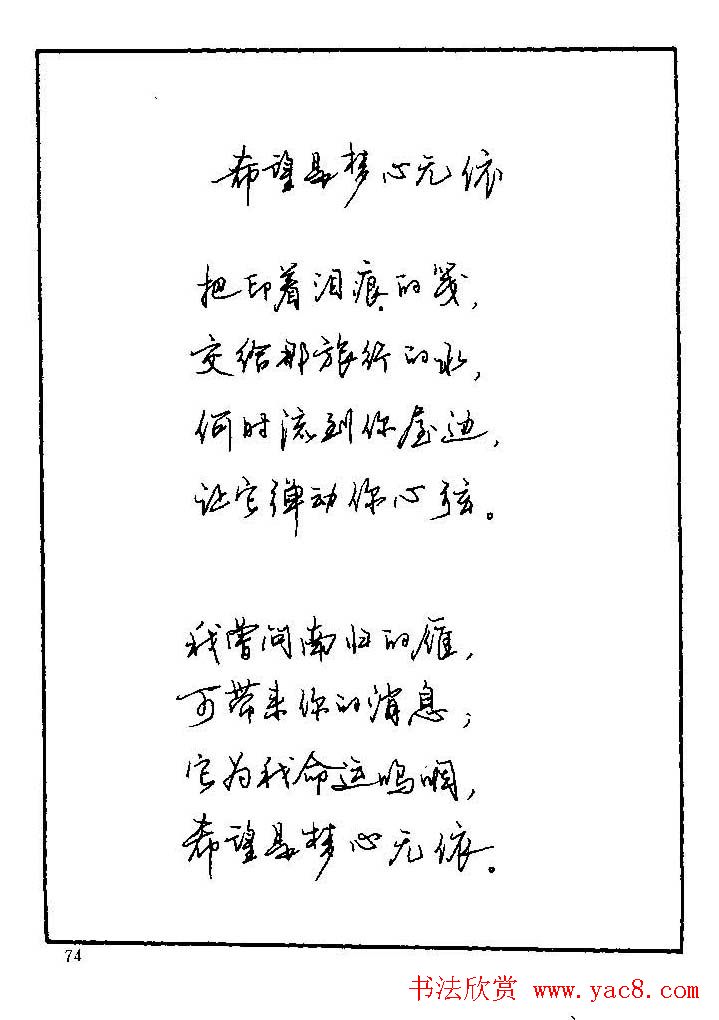 希望是梦心无依
把印着泪痕的笺,
交给那旅行的水,
何时流到你屋边,
让它弹动你心弦。
我曾问南归的雁,
可带来你的消息;
它为我命运呜咽,
希望是梦心无依。
74
书法欣赏 www.yac8.com